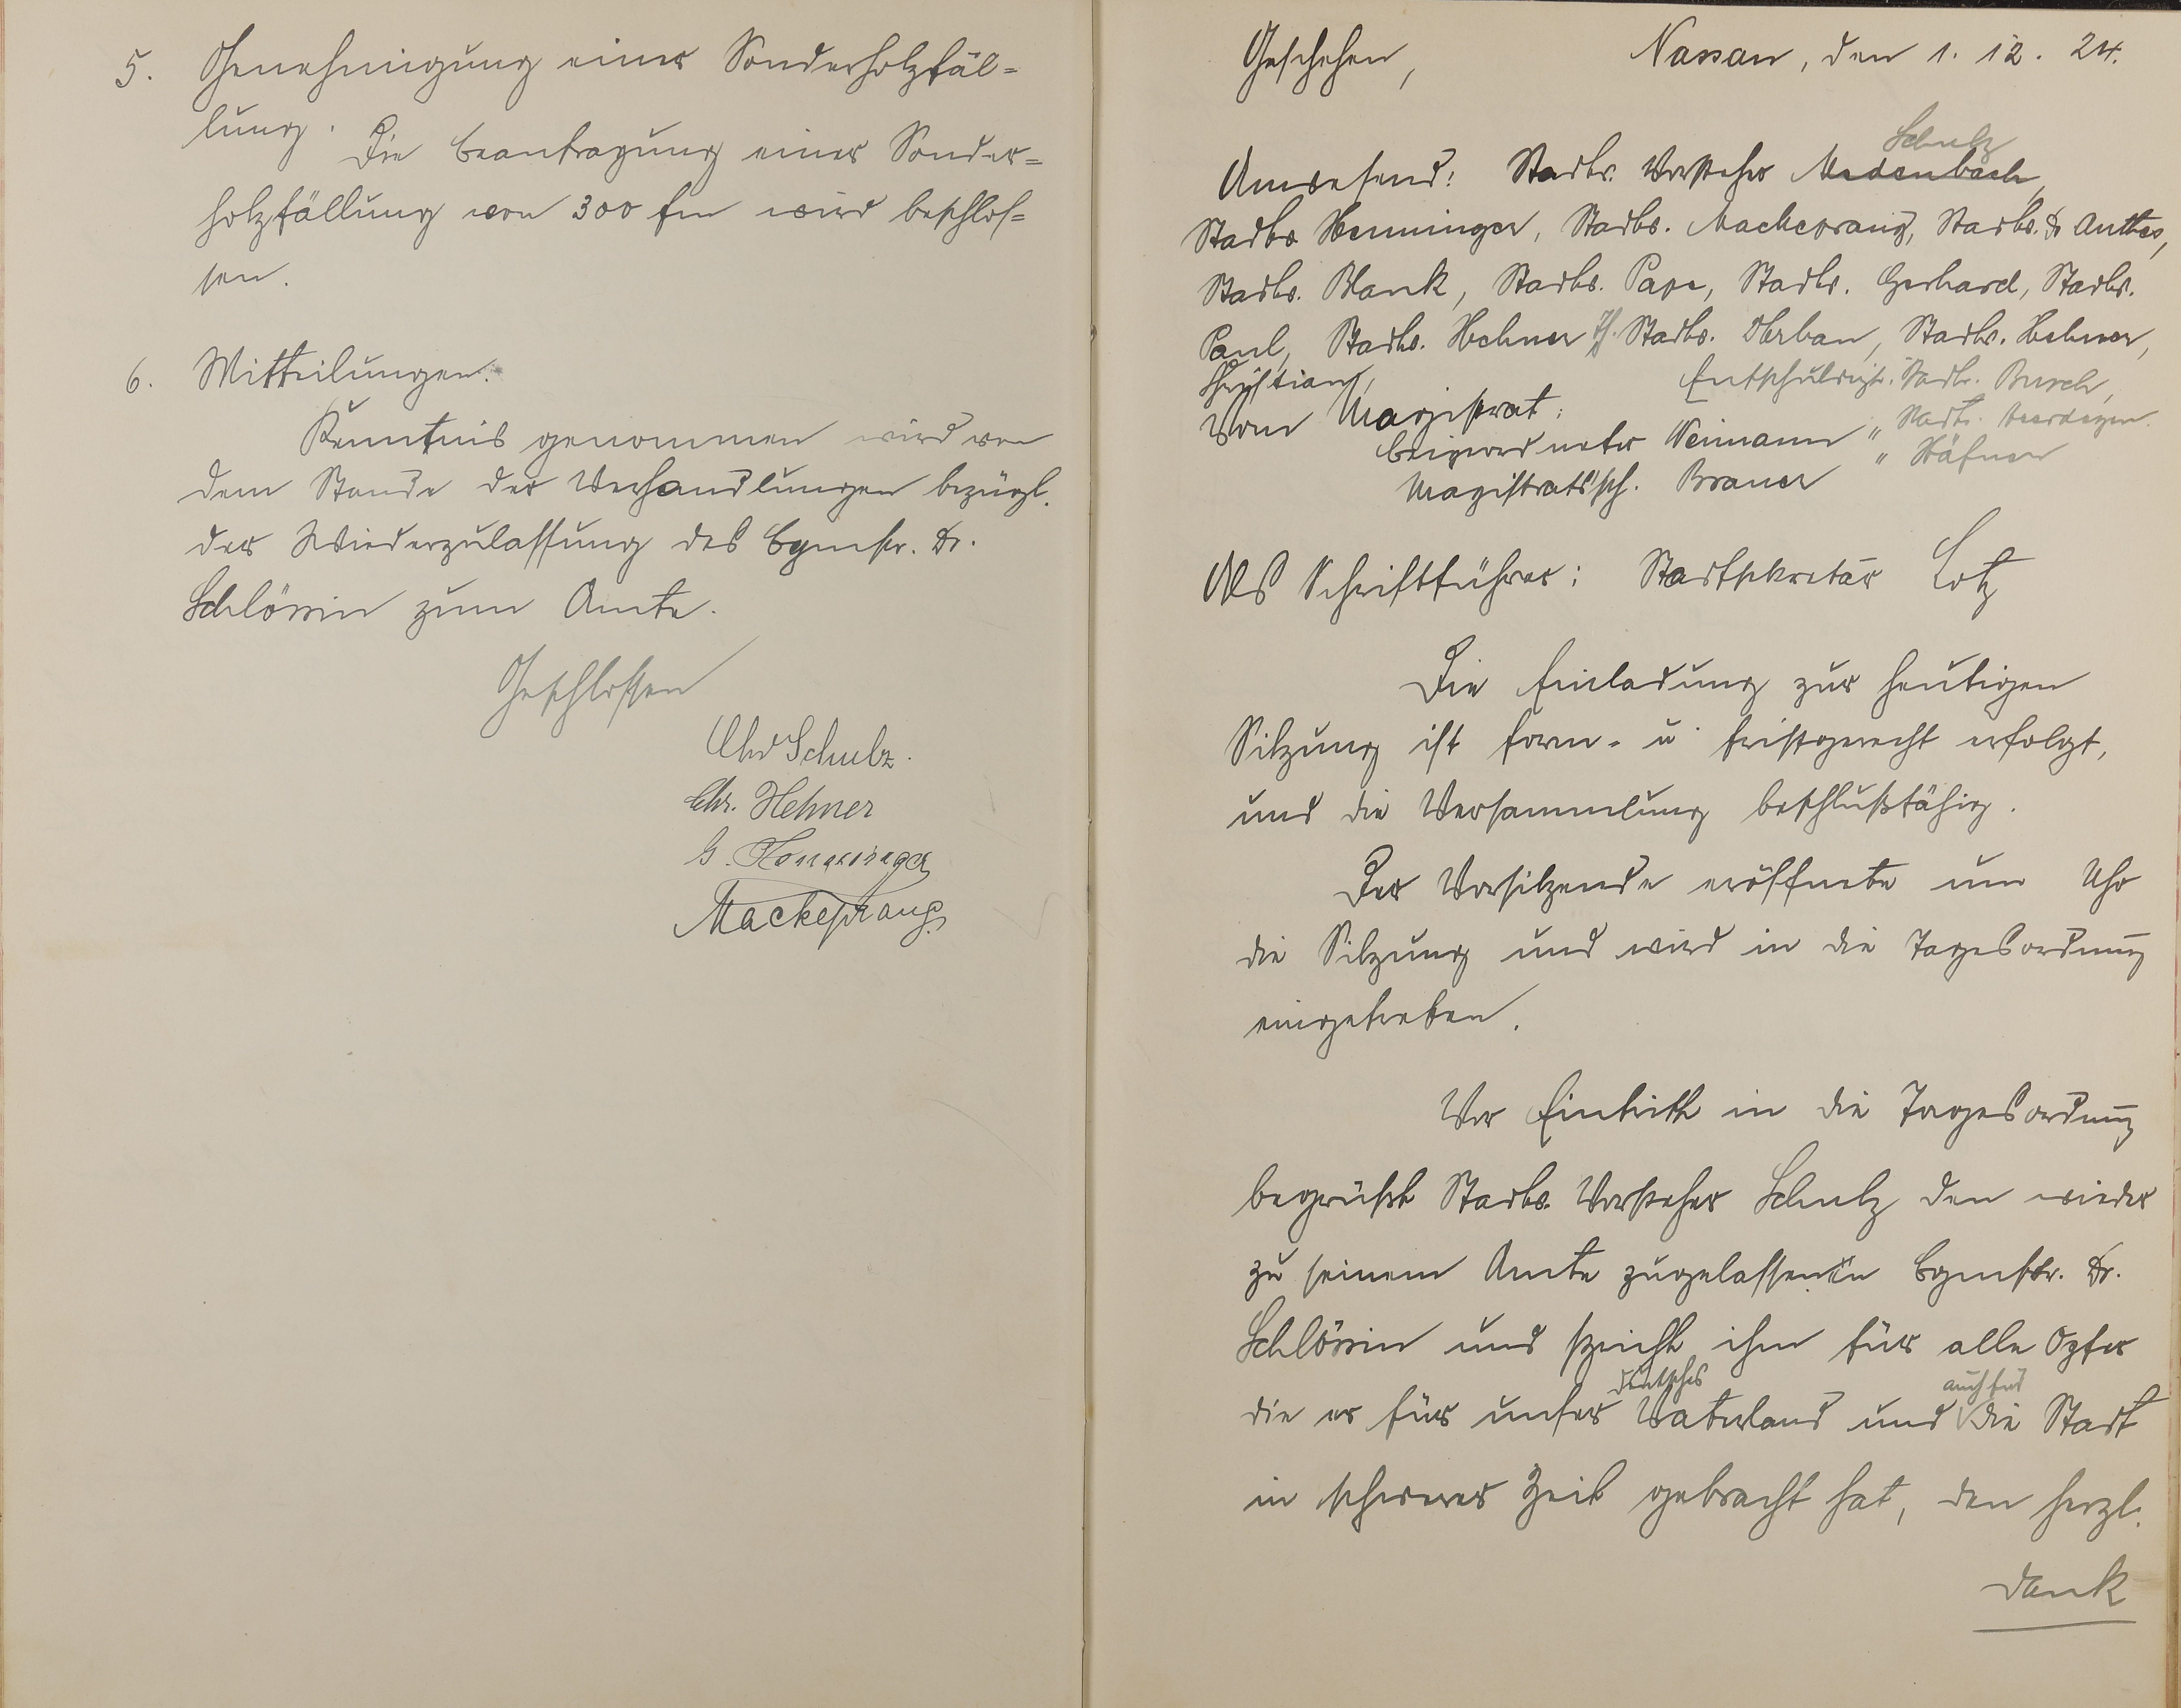 5. Genehmigung einer Sonderholzfäl=
lung.
Die Beantragung einer Sonder=
holzfällung von 300 fm wird beschlos=
sen.
6. Mitteilungen.
Kenntnis genommen wird von
dem Stande der Verhandlungen bezügl.
der Wiederzulassung des Bgmstr. Dr.
Schlössin zum Amte.
Geschlossen
Chr Schulz.
Chr. Hehner
G. Henninger
Mackeprang
Geschehen, Nassau, den 1. 12. 24.
Schulz
Anwesend: Stadtv. Vorsteher Medenbach,
Stadtv. Henninger, Stadtv. Mackeprang, Stadtv. Dr Anthes,
Stadtv. Blank, Stadtv. Pape, Stadtv. Gerhard, Stadtv.
Paul, Stadtv. Hehner Th. Stadtv. Urban, Stadtv. Hehner,
Christian,
Entschuldigt: Stadtv. Busch,
Vom Magistrat:
Beigeordneter Weimann " Stadtv.
Magistratssch. Brauer " Häfner
Als Schriftführer: Stadtsekretär Lotz
Die Einladung zur heutigen
Sitzung ist form- u fristgerecht erfolgt,
und die Versammlung beschlußfähig.
Der Vorsitzende eröffnete um Uhr
die Sitzung und wird in die Tagesordnung
eingetreten.
Vor Eintritt in die Tagesordnung
begrüßt Stadtv. Vorsteher Schulz den wieder
zu seinem Amte zugelassenen Bgmstr. Dr.
Schlössin und spricht ihm für alle Opfer
deutsches auch für
die er für unser Vaterland und die Stadt
in schwerer Zeit gebracht hat, den herzl.
Dank